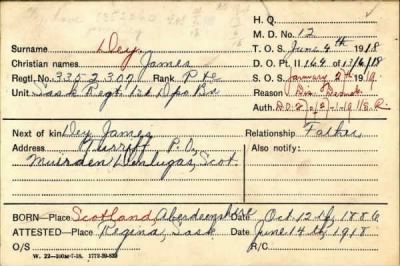 H. Q.
M. D. No. 12
Surname Dey,
T. O. S. June 4th 1918
Christian names James
D. O. Pt. II 164 of 13/6/18
Regtl. No. 3352307 Rank Pte
S. O. S. January 2nd 19
Unit Sask Regt 1st Dpo Bn
Reason Dis. Demob.
Auth.
Next of kin Dey, James
Relationship Father
Address Turriff P.O,
Also notify:
Muirden Dunlugas, Scot.
BORN—Place Scotland, Aberdeenshire Date Oct 12th, 1886
ATTESTED—Place Regina, Sask Date June 14th, 1918
O/S R/C
W. 22—200M-7-18. 1772-39-839